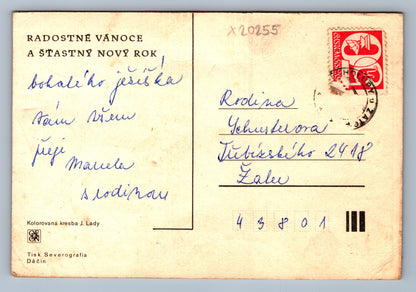 RADOSTNÉ VÁNOCE
A ŠŤASTNÝ NOVÝ ROK
x20255
bohatého ježíška
Vám všem
přeje Marcela
s rodinou
Rodina
Schusterova
Třebízského 2418
Žatec
43801
Kolorovaná kresba J. Lady
Tisk Severografia
Děčín